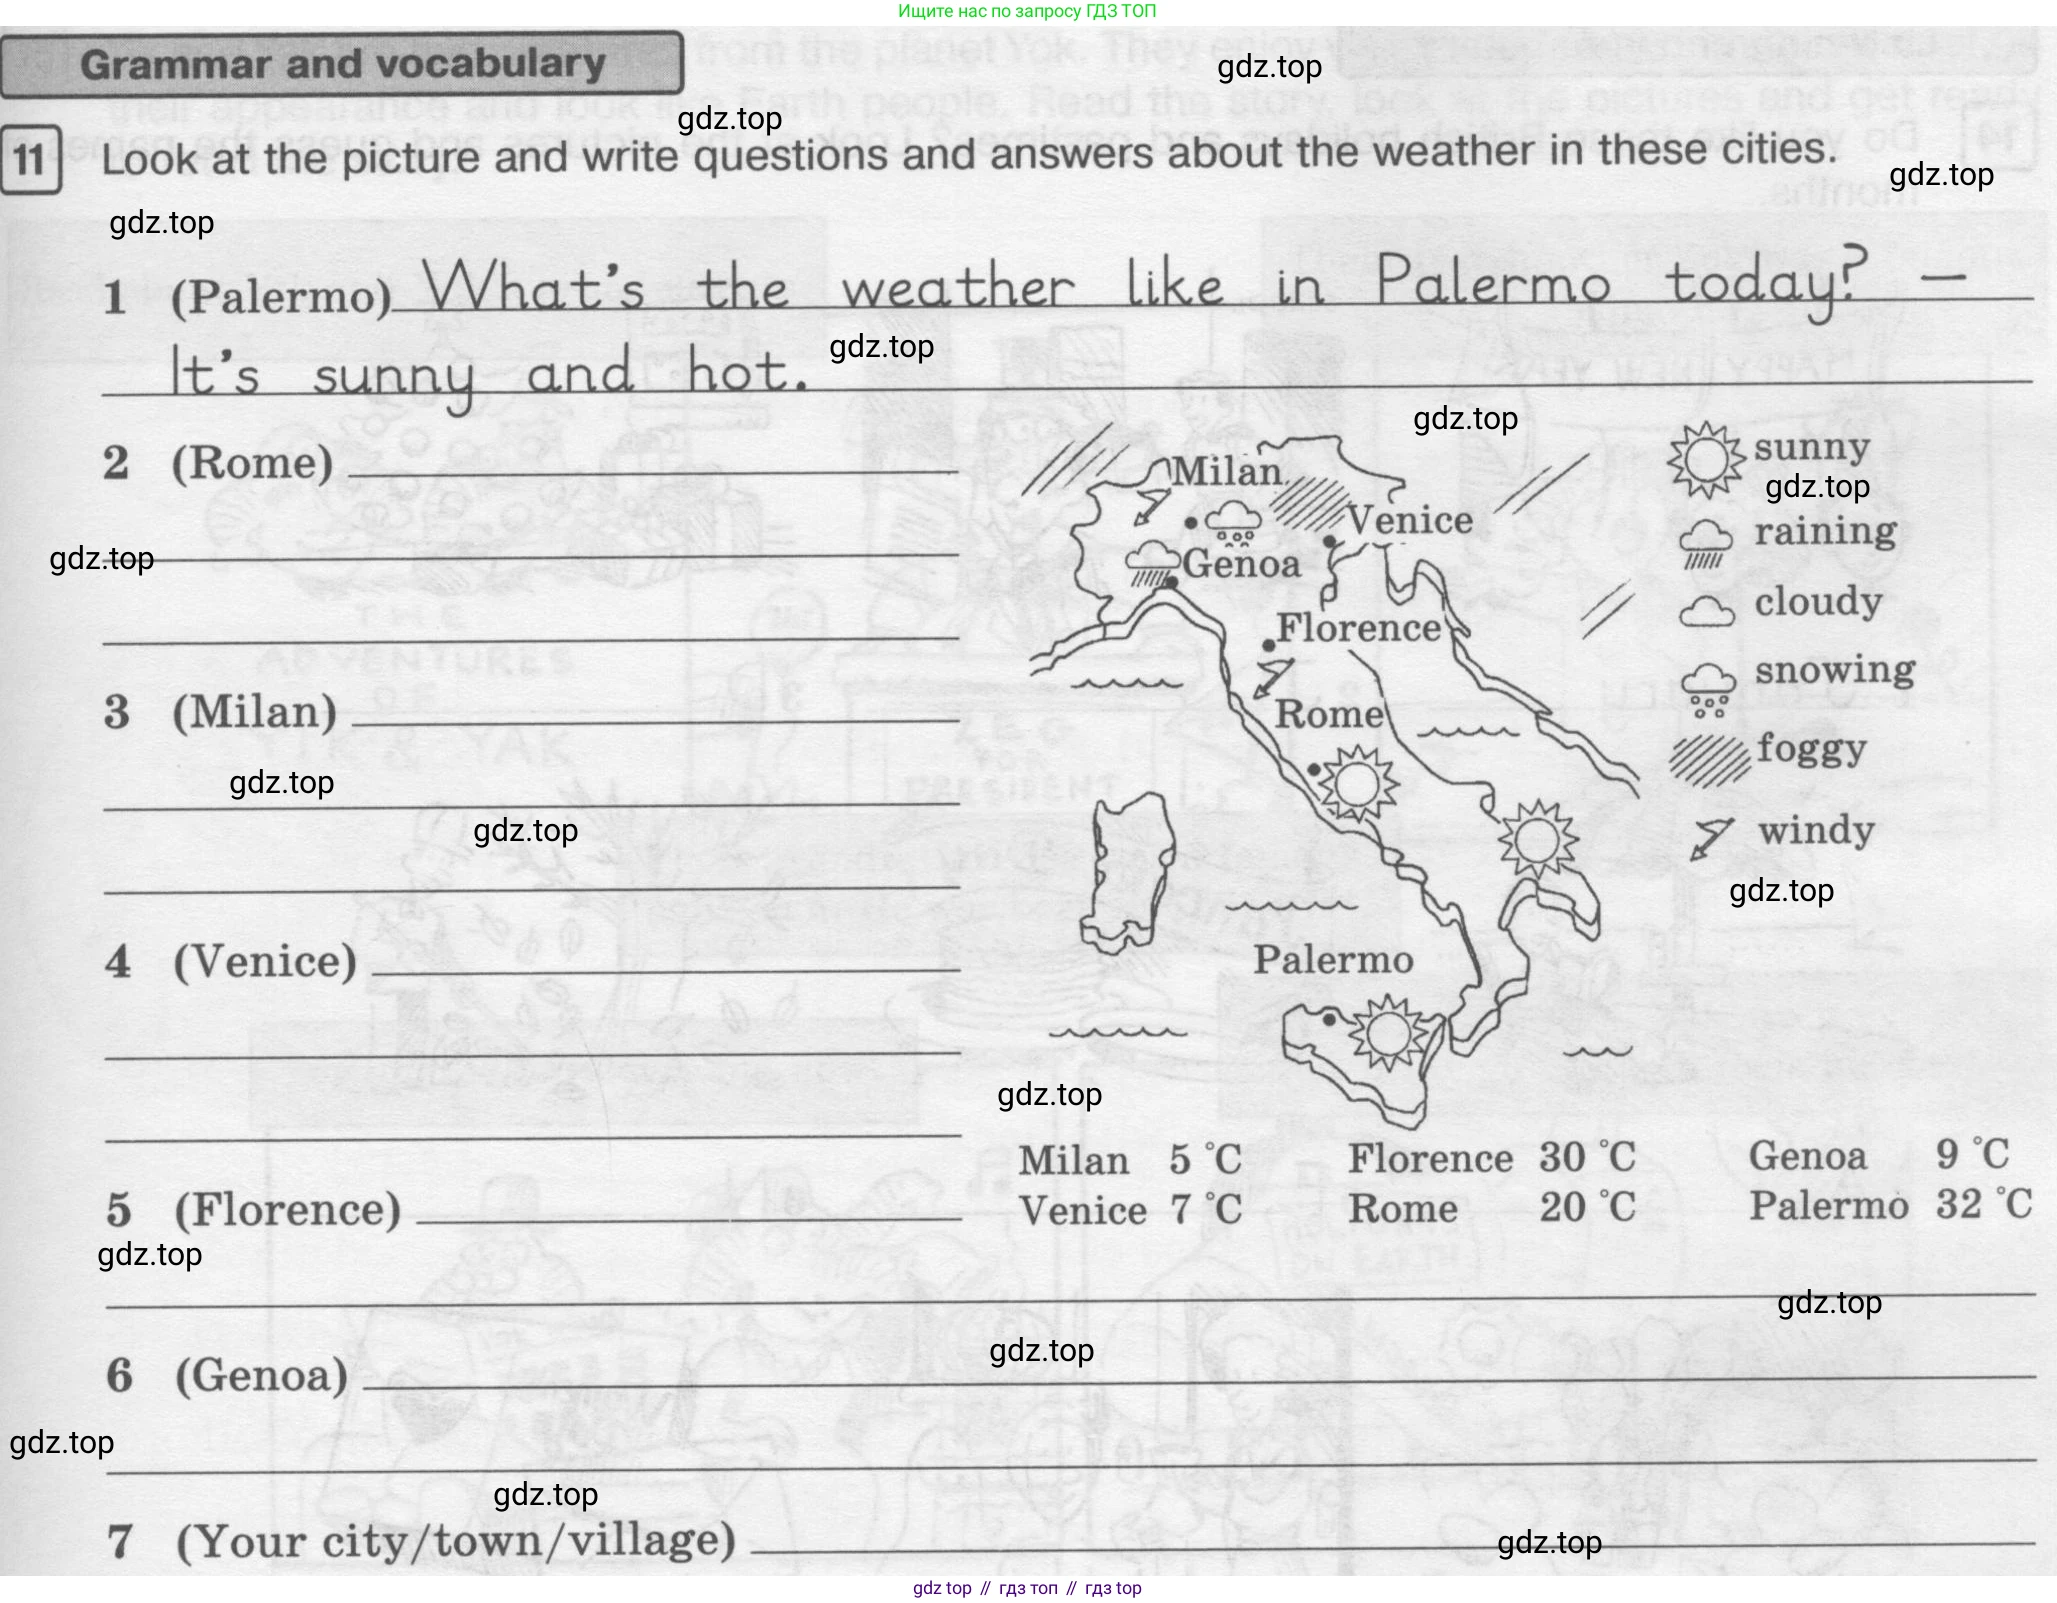 Ищите нас по запросу ГДЗ ТОП
Grammar and vocabulary
gdz.top
gdz.top
11 Look at the picture and write questions and answers about the weather in these cities.
gdz.top
gdz.top
1 (Palermo) What's the weather like in Palermo today? –
It's sunny and hot.
gdz.top
gdz.top
2 (Rome)
gdz.top
3 (Milan)
gdz.top
gdz.top
4 (Venice)
5 (Florence)
gdz.top
Milan
Venice
Genoa
Florence
Rome
Palermo
sunny
gdz.top
raining
cloudy
snowing
foggy
windy
gdz.top
gdz.top
Milan 5 °C Florence 30 °C Genoa 9 °C
Venice 7 °C Rome 20 °C Palermo 32 °C
gdz.top
gdz.top
6 (Genoa)
gdz.top
gdz.top
7 (Your city/town/village)
gdz.top
gdz top // гдз топ // гдз top